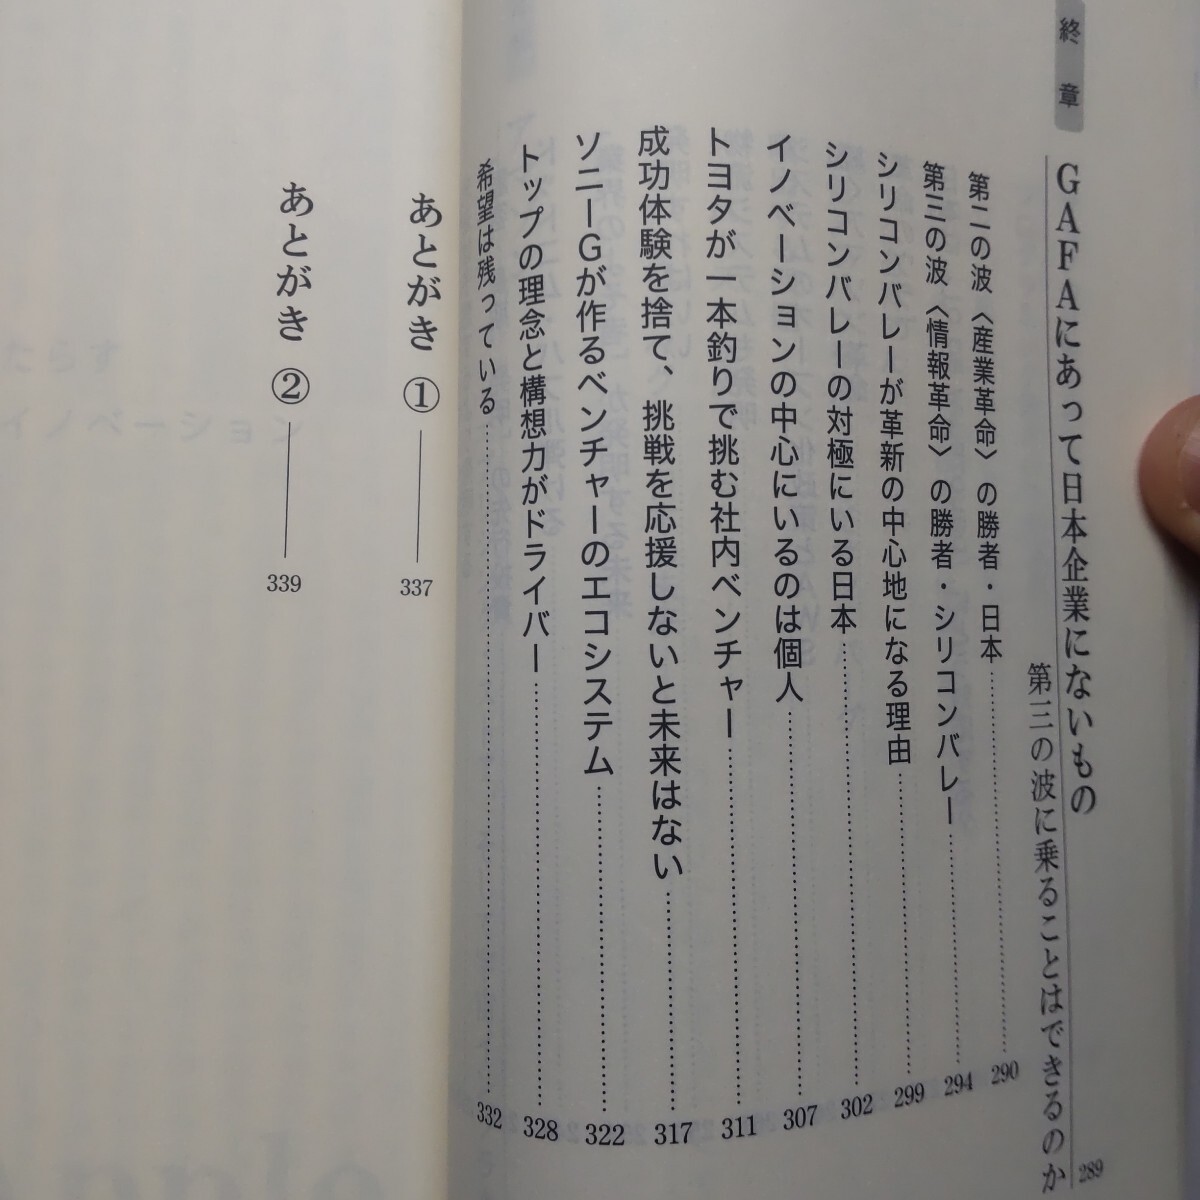 終章
GAFAにあって日本企業にないもの
第三の波に乗ることはできるのか
289
第二の波〈産業革命〉の勝者・日本 290
第三の波〈情報革命〉の勝者・シリコンバレー 294
シリコンバレーが革新の中心地になる理由 299
シリコンバレーの対極にいる日本 302
イノベーションの中心にいるのは個人 307
トヨタが一本釣りで挑む社内ベンチャー 311
成功体験を捨て、挑戦を応援しないと未来はない 317
ソニーGが作るベンチャーのエコシステム 322
トップの理念と構想力がドライバー 328
希望は残っている 332
あとがき ① 337
あとがき ② 339